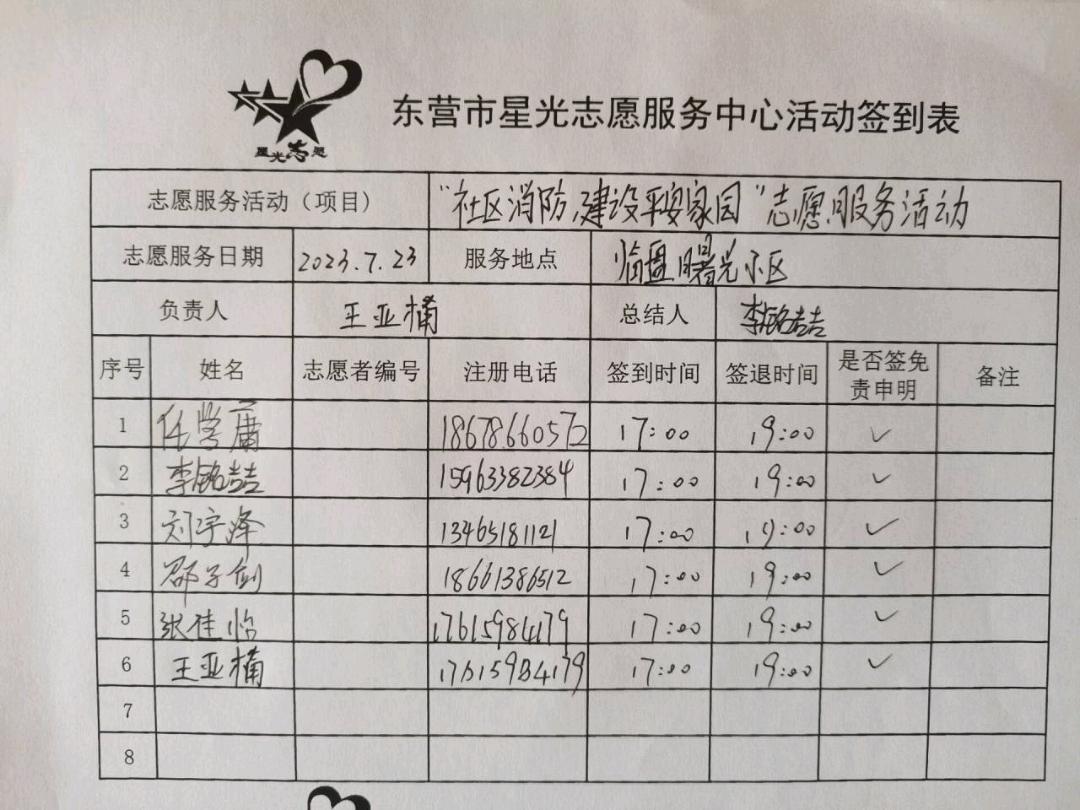 星光志愿
东营市星光志愿服务中心活动签到表
志愿服务活动（项目） "社区消防，建设平安家园"志愿服务活动
志愿服务日期 2023.7.23 服务地点 临盘曙光小区
负责人 王亚楠 总结人 李铭喆
序号 姓名 志愿者编号 注册电话 签到时间 签退时间 是否签免责申明 备注
1 任学庸 18678660572 17:00 19:00 ✓
2 李铭喆 15963382384 17:00 19:00 ✓
3 刘宇泽 13465181121 17:00 19:00 ✓
4 邵子剑 18661386512 17:00 19:00 ✓
5 张佳怡 17615984179 17:00 19:00 ✓
6 王亚楠 17615984179 17:00 19:00 ✓
7
8